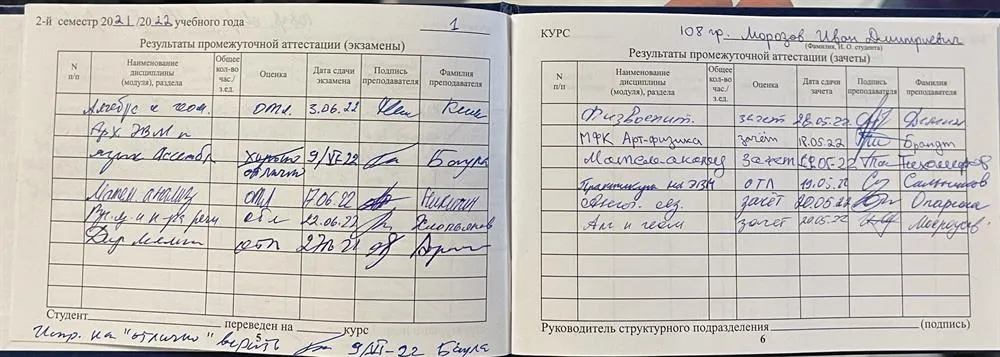 2-й семестр 2021/2022 учебного года 1
Результаты промежуточной аттестации (экзамены)
N п/п Наименование дисциплины (модуля), раздела Общее кол-во час./з.ед. Оценка Дата сдачи экзамена Подпись преподавателя Фамилия преподавателя
Алгебра и геом. отл. 3.06.22
Арх ЭВМ и
язык Ассембл хорошо 9/VI-22 Батула
отлично
Матем анализ отл 17.06.22 Никитин
отл 22.06.22
отл
Студент переведен на курс
Испр. на "отлично" верить 9/VI-22
КУРС 108 гр. Морозов Иван Дмитриевич
(Фамилия, И. О. студента)
Результаты промежуточной аттестации (зачеты)
N п/п Наименование дисциплины (модуля), раздела Общее кол-во час./з.ед. Оценка Дата сдачи зачета Подпись преподавателя Фамилия преподавателя
Физвоспит. зачет 28.05.22
МФК Арт-физика зачёт 18.05.22 Брандт
Матем-анализ зачет
Практикум на ЭВМ ОТЛ 19.05.22 Сальников
Англ. яз. зачёт 20.05.22 Опарина
Ал и геом зачет 20.05.22
Руководитель структурного подразделения (подпись)
6